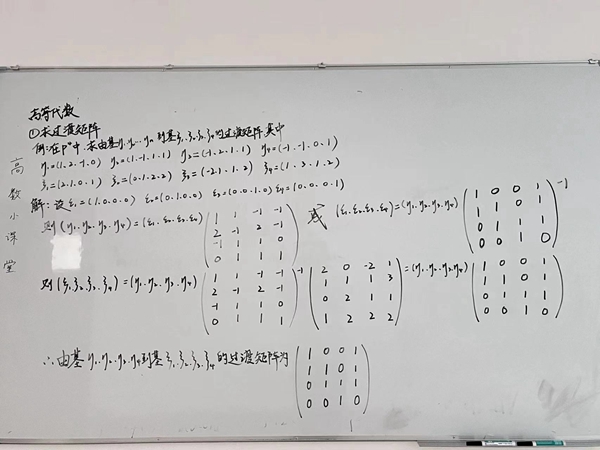 高等代数
①求过渡矩阵
例:在P⁴中,求由基η₁,η₂…η₄到基ξ₁,ξ₂,ξ₃,ξ₄的过渡矩阵,其中
η₁=(1,2,-1,0) η₂=(1,-1,1,1) η₃=(-1,2,1,1) η₄=(-1,-1,0,1)
ξ₁=(2,1,0,1) ξ₂=(0,1,2,2) ξ₃=(-2,1,1,2) ξ₄=(1,3,1,2)
解:设ε₁=(1,0,0,0) ε₂=(0,1,0,0) ε₃=(0,0,1,0) ε₄=(0,0,0,1)
则(η₁,η₂,η₃,η₄)=(ε₁,ε₂,ε₃,ε₄)
1 1 -1 -1
2 -1 2 -1
-1 1 1 0
0 1 1 1
或 (ε₁,ε₂,ε₃,ε₄)=(η₁,η₂,η₃,η₄)
1 0 0 1
1 1 0 1
0 1 1 1
0 0 1 0
-1
则(ξ₁,ξ₂,ξ₃,ξ₄)=(η₁,η₂,η₃,η₄)
1 1 -1 -1
2 -1 2 -1
-1 1 1 0
0 1 1 1
-1
2 0 -2 1
1 1 1 3
0 2 1 1
1 2 2 2
=(η₁,η₂,η₃,η₄)
1 0 0 1
1 1 0 1
0 1 1 1
0 0 1 0
∴由基η₁,η₂,η₃,η₄到基ξ₁,ξ₂,ξ₃,ξ₄的过渡矩阵为
1 0 0 1
1 1 0 1
0 1 1 1
0 0 1 0
高数小课堂